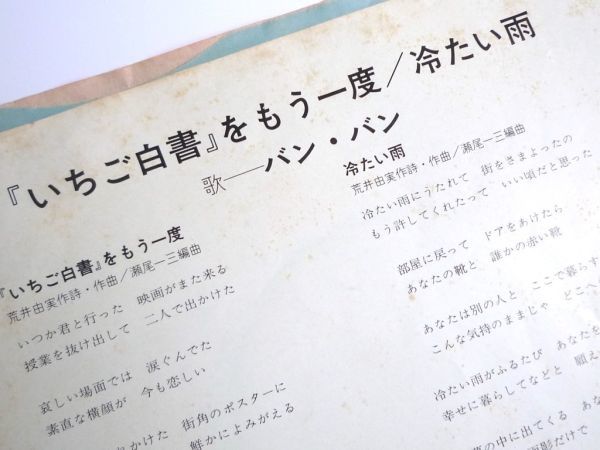 『いちご白書』をもう一度／冷たい雨
歌──バン・バン
『いちご白書』をもう一度
荒井由実作詩・作曲／瀬尾一三編曲
いつか君と行った　映画がまた来る
授業を抜け出して　二人で出かけた
哀しい場面では　涙ぐんでた
素直な横顔が　今も恋しい
かけた　街角のポスターに
鮮かによみがえる
冷たい雨
荒井由実作詩・作曲／瀬尾一三編曲
冷たい雨にうたれて　街をさまよったの
もう許してくれたって　いい頃だと思った
部屋に戻って　ドアをあけたら
あなたの靴と　誰かの赤い靴
あなたは別の人と　ここで暮らす
こんな気持のままじゃ　どこへ
冷たい雨がふるたび　あなたを
幸せに暮らしてなどと　願え
の中に出てくる　あな
面影だけで